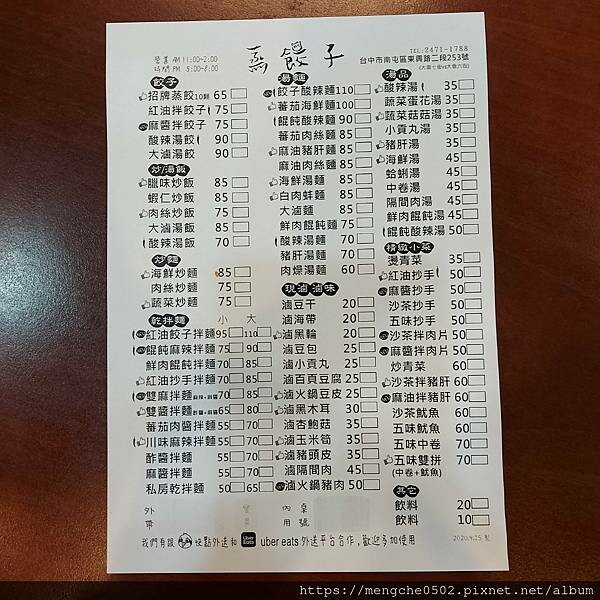 蒸餃子
營業 AM 11:00-2:00
時間 PM 5:00-8:00
TEL:2471-1788
台中市南屯區東興路二段253號
餃子
招牌蒸餃10顆 65
紅油拌餃子 75
麻醬拌餃子 75
酸辣湯餃 90
大滷湯餃 90
炒/湯飯
臘味炒飯 85
蝦仁炒飯 85
肉絲炒飯 75
大滷湯飯 85
酸辣湯飯 70
炒麵
海鮮炒麵 85
肉絲炒麵 75
蔬菜炒麵 75
乾拌麵 小 大
紅油餃子拌麵 95 110
餛飩麻辣拌麵 75 90
鮮肉餛飩拌麵 70 85
紅油抄手拌麵 70 85
雙麻拌麵 70 85
雙醬拌麵 65 80
蕃茄肉醬拌麵 55 70
川味麻辣拌麵 55 70
酢醬拌麵 55 70
麻醬拌麵 55 70
私房乾拌麵 50 65
湯麵
餃子酸辣麵 110
蕃茄海鮮麵 100
餛飩酸辣麵 90
蕃茄肉絲麵 85
麻油豬肝麵 85
麻油肉絲麵 85
海鮮湯麵 85
白肉蚌麵 85
大滷麵 85
鮮肉餛飩麵 75
酸辣湯麵 70
豬肝湯麵 70
肉燥湯麵 60
現滷 滷味
滷豆干 20
滷海帶 20
滷黑輪 20
滷豆包 25
滷小貢丸 25
滷百頁豆腐 25
滷火鍋豆皮 25
滷黑木耳 30
滷杏鮑菇 35
滷玉米筍 35
滷豬頭皮 35
滷隔間肉 45
滷火鍋豬肉 50
湯品
酸辣湯 35
蔬菜蛋花湯 35
蔬菜菇菇湯 35
小貢丸湯 35
豬肝湯 35
海鮮湯 45
蛤蜊湯 45
中卷湯 45
隔間肉湯 45
鮮肉餛飩湯 45
餛飩酸辣湯 50
精緻小菜
燙青菜 35
紅油抄手 50
麻醬抄手 50
沙茶抄手 50
五味抄手 50
沙茶拌肉片 50
麻醬拌肉片 50
炒青菜 50
沙茶拌豬肝 60
麻油拌豬肝 60
沙茶魷魚 60
五味魷魚 60
五味中卷 70
五味雙拼 70
(中卷+魷魚)
其它
飲料 20
飲料 10
外帶
內用
桌號
我們有跟 快點外送和 Uber Eats uber eats外送平台合作,歡迎多加使用
2020.4.25 製
https://mengche0502.pixnet.net/album